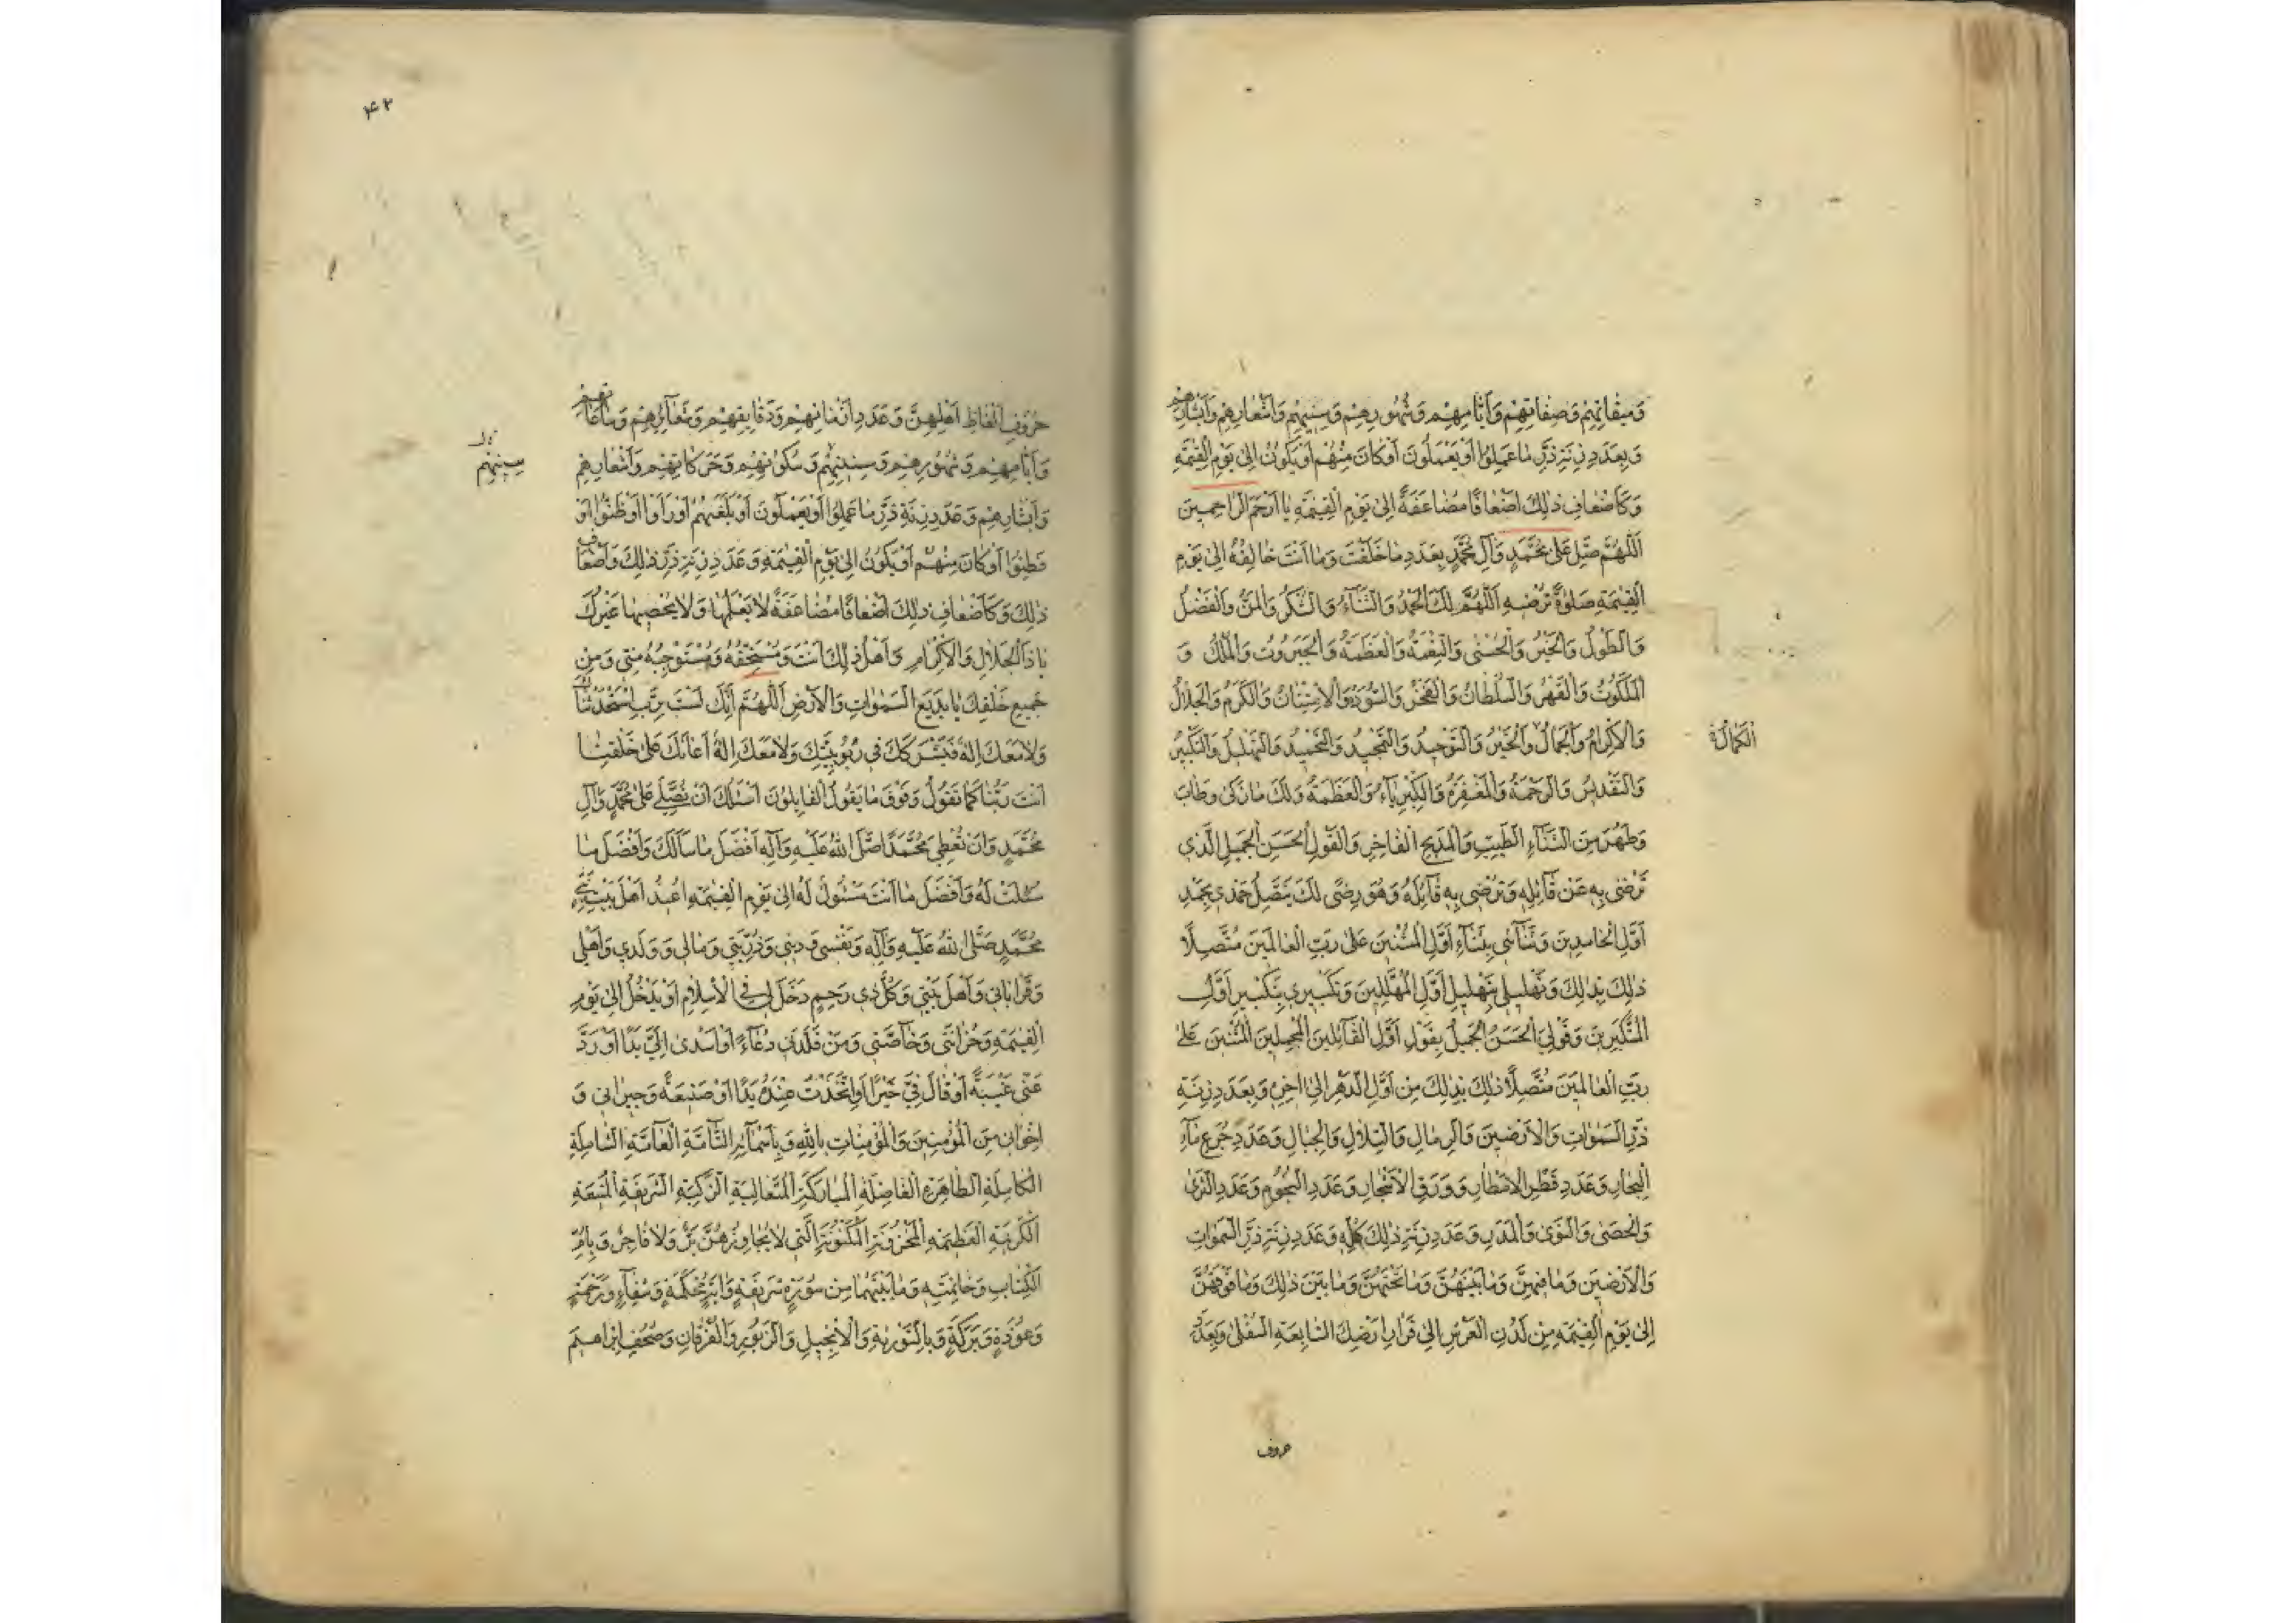 وَميقاتِهِمْ وَصِفاتِهِمْ وَاَيّامِهِمْ وَشُهُورِهِمْ وَسِنيهِمْ وَاَشْعارِهِمْ وَاَبْشارِهِمْ
وَبِعَدَدِ زِنَةِ ذَرِّ ما عَمِلُوا اَوْ يَعْمَلُونَ اَوْ كانَ مِنْهُمْ اَوْ يَكُونُ اِلى يَوْمِ الْقِيٰمَةِ
وَكَاَضْعافِ ذٰلِكَ اَضْعافًا مُضاعَفَةً اِلى يَوْمِ الْقِيٰمَةِ يا اَرْحَمَ الرّاحِمينَ
اَللّٰهُمَّ صَلِّ عَلى مُحَمَّدٍ وَآلِ مُحَمَّدٍ بِعَدَدِ ما خَلَقْتَ وَما اَنْتَ خالِقُهُ اِلى يَوْمِ
الْقِيٰمَةِ صَلٰوةً تُرْضيهِ اَللّٰهُمَّ لَكَ الْحَمْدُ وَالثَّنآءُ وَالشُّكْرُ وَالْمَنُّ وَالْفَضْلُ
وَالطَّوْلُ وَالْخَيْرُ وَالْحُسْنى وَالنِّعْمَةُ وَالْعَظَمَةُ وَالْجَبَرُوتُ وَالْمُلْكُ وَ
الْمَلَكُوتُ وَالْقَهْرُ وَالسُّلْطانُ وَالْفَخْرُ وَالسُّؤْدَدُ وَالْاِمْتِنانُ وَالْكَرَمُ وَالْجَلالُ
وَالْاِكْرامُ وَالْجَمالُ وَالْخَيْرُ وَالتَّوْحيدُ وَالتَّمْجيدُ وَالتَّحْميدُ وَالتَّهْليلُ وَالتَّكْبيرُ
الْكَمالُ
وَالتَّقْديسُ وَالرَّحْمَةُ وَالْمَغْفِرَةُ وَالْكِبْرِيآءُ وَالْعَظَمَةُ وَلَكَ ما زَكى وَطابَ
وَطَهُرَ مِنَ الثَّنآءِ الطَّيِّبِ وَالْمَديحِ الْفاخِرِ وَالْقَوْلِ الْحَسَنِ الْجَميلِ الَّذي
تَرْضى بِهِ عَنْ قآئِلِهِ وَتُرْضي بِهِ قآئِلَهُ وَهُوَ رِضًى لَكَ يَتَّصِلُ حَمْدي بِحَمْدِ
اَوَّلِ الْحامِدينَ وَثَنآئي بِثَنآءِ اَوَّلِ الْمُثْنينَ عَلى رَبِّ الْعالَمينَ مُتَّصِلًا
ذٰلِكَ بِذٰلِكَ وَتَهْليلي بِتَهْليلِ اَوَّلِ الْمُهَلِّلينَ وَتَكْبيري بِتَكْبيرِ اَوَّلِ
الْمُكَبِّرينَ وَقَوْلِيَ الْحَسَنُ الْجَميلُ بِقَوْلِ اَوَّلِ الْقآئِلينَ الْمُجْمِلينَ الْمُثْنينَ عَلى
رَبِّ الْعالَمينَ مُتَّصِلًا ذٰلِكَ بِذٰلِكَ مِنْ اَوَّلِ الدَّهْرِ اِلى اٰخِرِهِ وَبِعَدَدِ زِنَةِ
ذَرِّ السَّمٰواتِ وَالْاَرَضينَ وَالرِّمالِ وَالتِّلالِ وَالْجِبالِ وَعَدَدِ جُرَعِ مآءِ
الْبِحارِ وَعَدَدِ قَطْرِ الْاَمْطارِ وَوَرَقِ الْاَشْجارِ وَعَدَدِ النُّجُومِ وَعَدَدِ الثَّرى
وَالْحَصى وَالنَّوى وَالْمَدَرِ وَعَدَدِ زِنَةِ ذٰلِكَ كُلِّهِ وَعَدَدِ زِنَةِ ذَرِّ السَّمٰواتِ
وَالْاَرَضينَ وَما فيهِنَّ وَما بَيْنَهُنَّ وَما تَحْتَهُنَّ وَما بَيْنَ ذٰلِكَ وَما فَوْقَهُنَّ
اِلى يَوْمِ الْقِيٰمَةِ مِنْ لَدُنِ الْعَرْشِ اِلى قَرارِ اَرْضِكَ السّابِعَةِ السُّفْلى وَبِعَدَدِ
حروف
۴۲
حُرُوفِ اَلْفاظِ اَهْلِهِنَّ وَعَدَدِ اَزْمانِهِمْ وَدَقايِقِهِمْ وَشَعآئِرِهِمْ وَساعاتِهِمْ
وَاَيّامِهِمْ وَشُهُورِهِمْ وَسِنينِهِمْ وَسُكُونِهِمْ وَحَرَكاتِهِمْ وَاَشْعارِهِمْ
سِنيهِمْ
وَاَبْشارِهِمْ وَعَدَدِ زِنَةِ ذَرِّ ما عَمِلُوا اَوْ يَعْمَلُونَ اَوْ بَلَغَهُمْ اَوْ رَاَوْا اَوْ ظَنُّوا اَوْ
فَطِنُوا اَوْ كانَ مِنْهُمْ اَوْ يَكُونُ اِلى يَوْمِ الْقِيٰمَةِ وَعَدَدِ زِنَةِ ذَرِّ ذٰلِكَ وَاَضْعافِ
ذٰلِكَ وَكَاَضْعافِ ذٰلِكَ اَضْعافًا مُضاعَفَةً لا يَعْلَمُها وَلا يُحْصيها غَيْرُكَ
يا ذَا الْجَلالِ وَالْاِكْرامِ وَاَهْلُ ذٰلِكَ اَنْتَ وَمُسْتَحِقُّهُ وَمُسْتَوْجِبُهُ مِنّي وَمِنْ
جَميعِ خَلْقِكَ يا بَديعَ السَّمٰواتِ وَالْاَرْضِ اَللّٰهُمَّ اِنَّكَ لَسْتَ بِرَبٍّ اِسْتَحْدَثْناكَ
وَلا مَعَكَ اِلٰهٌ فَيَشْرَكَكَ في رُبُوبِيَّتِكَ وَلا مَعَكَ اِلٰهٌ اَعانَكَ عَلى خَلْقِنا
اَنْتَ رَبُّنا كَما تَقُولُ وَفَوْقَ ما يَقُولُ الْقايِلُونَ اَسْئَلُكَ اَنْ تُصَلِّيَ عَلى مُحَمَّدٍ وَآلِ
مُحَمَّدٍ وَاَنْ تُعْطِيَ مُحَمَّدًا صَلَّى اللّٰهُ عَلَيْهِ وَآلِهِ اَفْضَلَ ما سَاَلَكَ وَاَفْضَلَ ما
سُئِلْتَ لَهُ وَاَفْضَلَ ما اَنْتَ مَسْئُولٌ لَهُ اِلى يَوْمِ الْقِيٰمَةِ اُعيذُ اَهْلَ بَيْتِ نَبِيّي
مُحَمَّدٍ صَلَّى اللّٰهُ عَلَيْهِ وَآلِهِ وَنَفْسي وَديني وَذُرِّيَّتي وَمالي وَوَلَدي وَاَهْلي
وَقَراباتي وَاَهْلَ بَيْتي وَكُلَّ ذي رَحِمٍ دَخَلَ لي فِي الْاِسْلامِ اَوْ يَدْخُلُ اِلى يَوْمِ
الْقِيٰمَةِ وَحُزانَتي وَخآصَّتي وَمَنْ قَلَّدَني دُعآءً اَوْ اَسْدى اِلَيَّ يَدًا اَوْ رَدَّ
عَنّي غيبَةً اَوْ قالَ فِيَّ خَيْرًا اَوِ اتَّخَذْتُ عِنْدَهُ يَدًا اَوْ صَنيعَةً وَجيراني وَ
اِخْواني مِنَ الْمُؤْمِنينَ وَالْمُؤْمِناتِ بِاللّٰهِ وَبِاَسْمآئِهِ التّآمَّةِ الْعآمَّةِ الشّامِلَةِ
الْكامِلَةِ الطّاهِرَةِ الْفاضِلَةِ الْمُبارَكَةِ الْمُتَعالِيَةِ الزَّكِيَّةِ الشَّريفَةِ الْمَنيعَةِ
الْكَريمَةِ الْعَظيمَةِ الْمَخْزُونَةِ الْمَكْنُونَةِ الَّتي لا يُجاوِزُهُنَّ بَرٌّ وَلا فاجِرٌ وَبِاُمِّ
الْكِتابِ وَخاتِمَتِهِ وَما بَيْنَهُما مِنْ سُورَةٍ شَريفَةٍ وَاٰيَةٍ مُحْكَمَةٍ وَشِفآءٍ وَرَحْمَةٍ
وَعُوذَةٍ وَبَرَكَةٍ وَبِالتَّوْرٰيةِ وَالْاِنْجيلِ وَالزَّبُورِ وَالْفُرْقانِ وَصُحُفِ اِبْراهيمَ